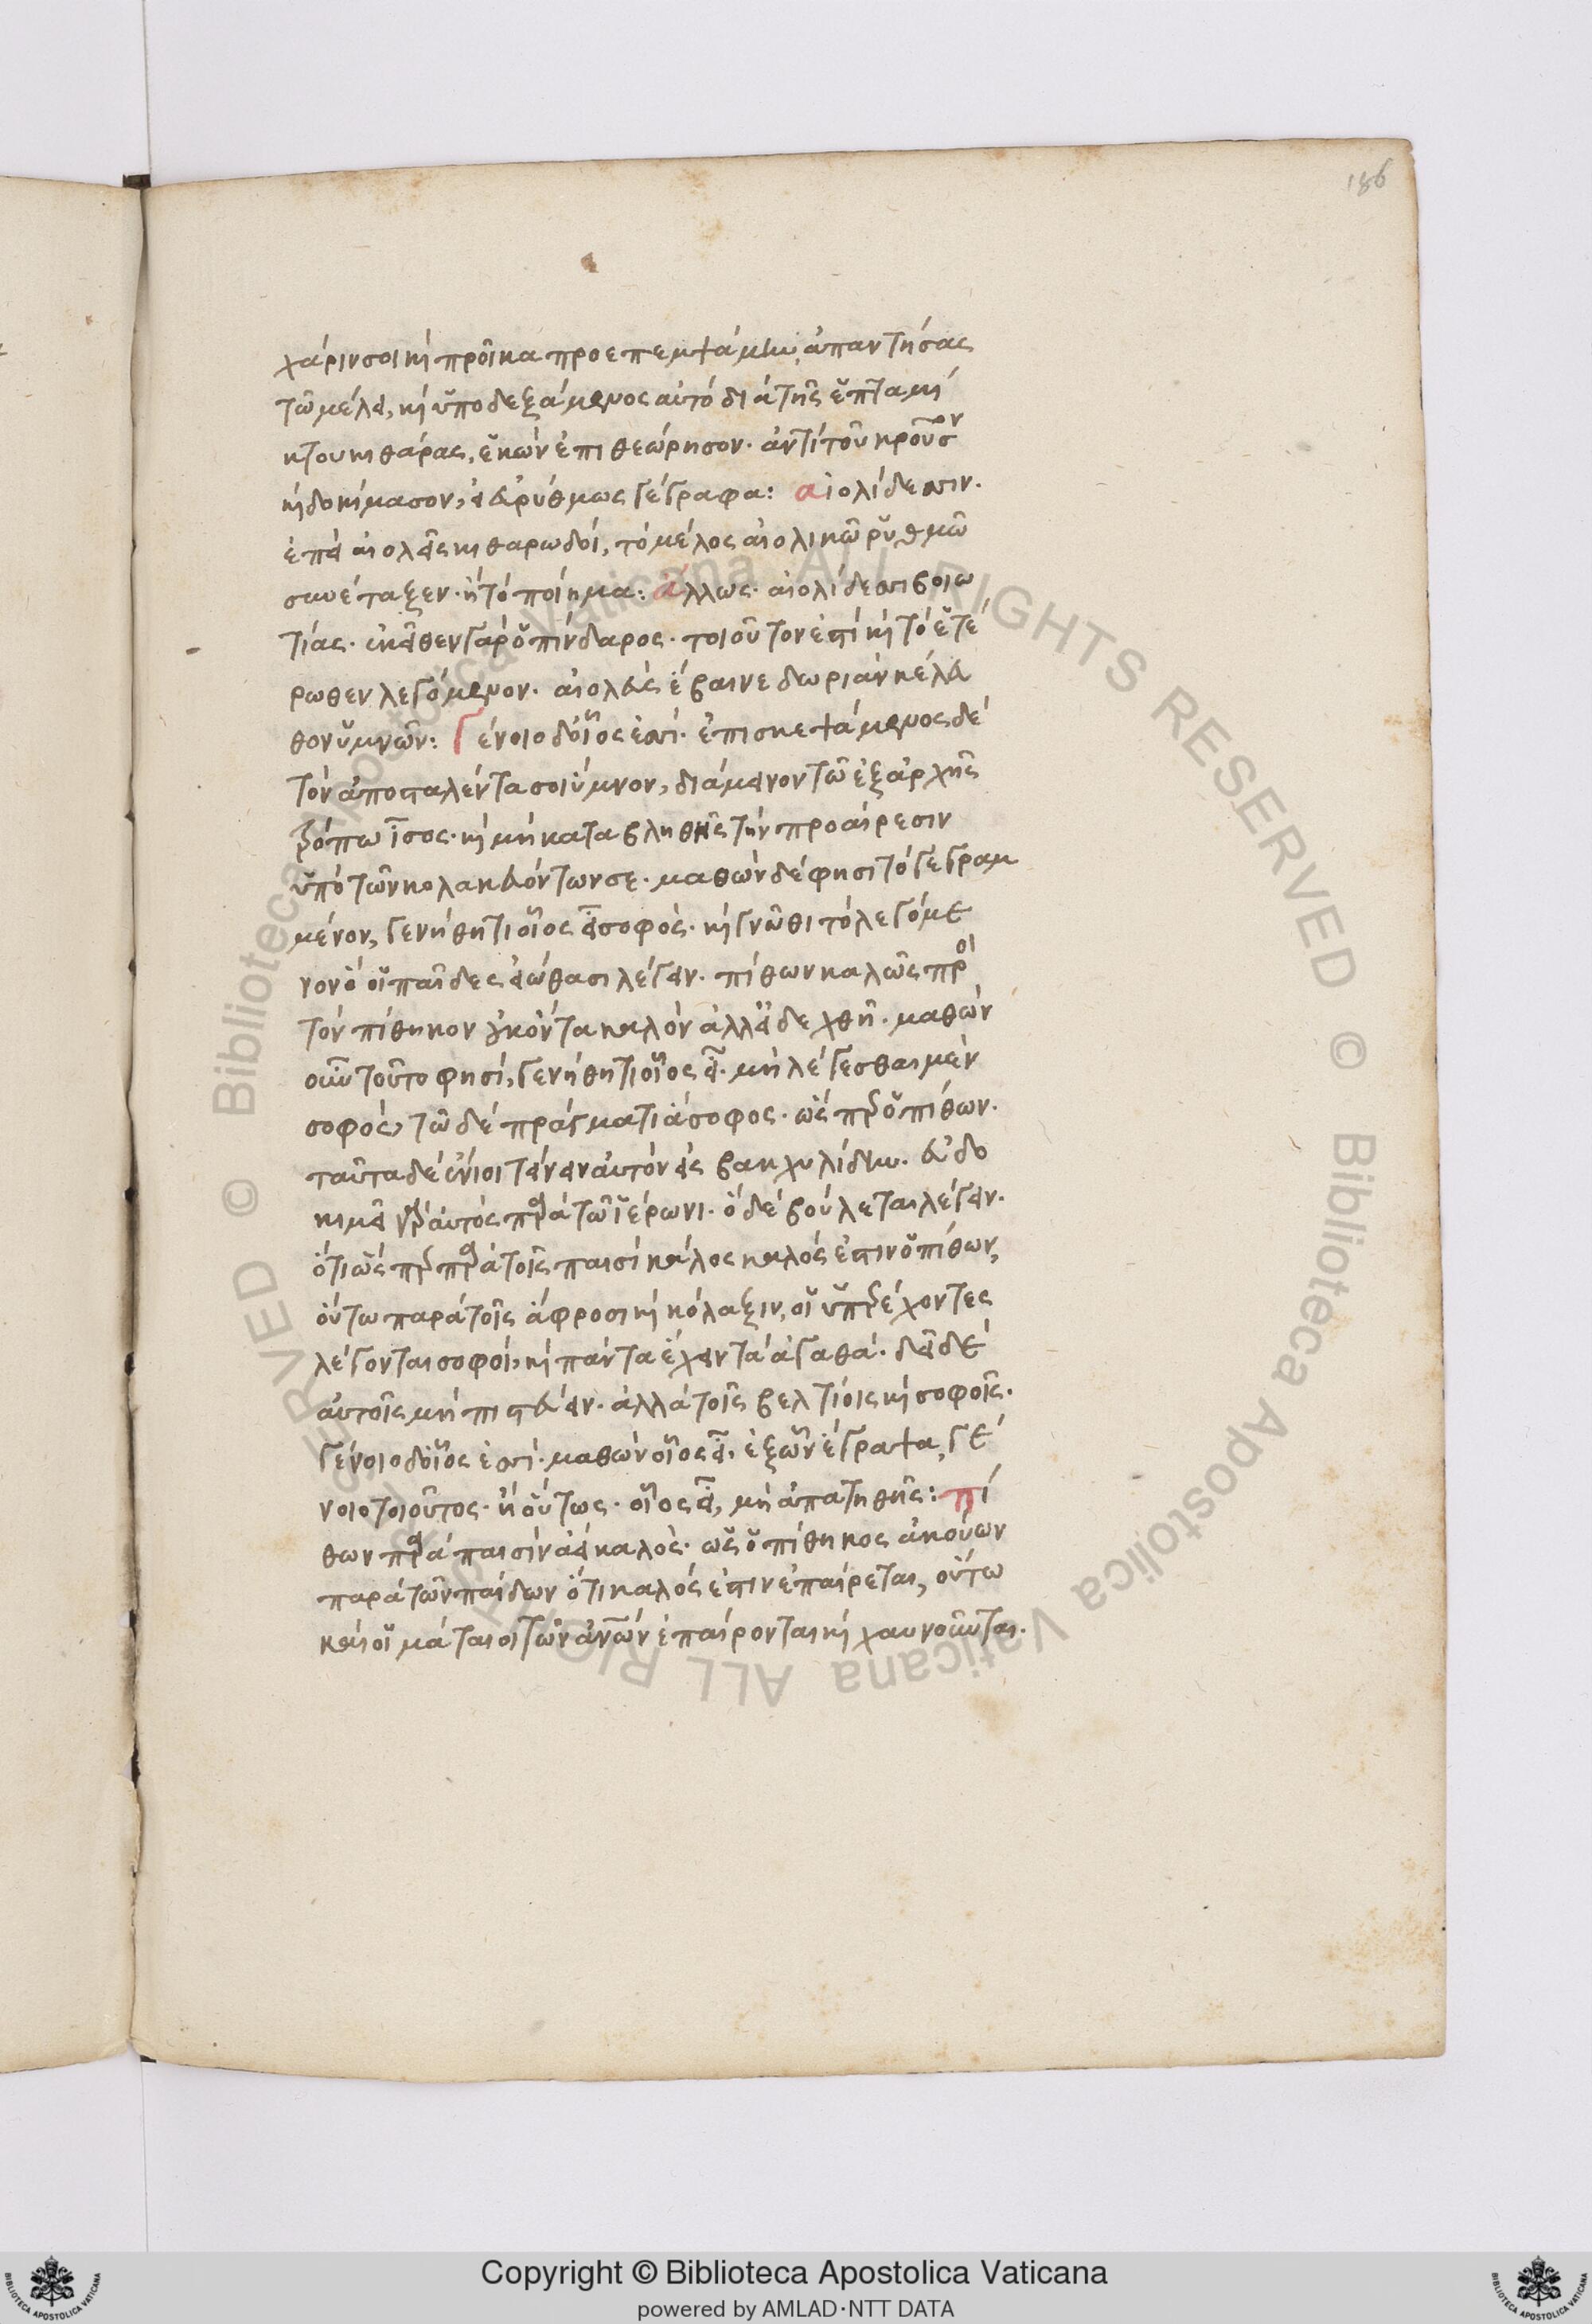 186
χάριν σοι καὶ προῖκα προεπεμψάμην, ἀπαντήσας
τῶ μέλει, καὶ ὑποδεξάμενος αὐτὸ διὰ τῆς ἑπταμί
κτου κιθάρας, ἑκὼν ἐπιθεώρησον· ἀντὶ τοῦ κροῦσον
καὶ δοκίμασον, εἰ εὐρύθμως γέγραφα: αἰολίδεσσιν·
ἐπεὶ αἰολεῖς κιθαρωδοί, τὸ μέλος αἰολικῶ ῥυθμῶ
συνέταξεν· ἢ τὸ ποίημα: ἄλλως· αἰολίδεσσι βοιω
τίας· ἐκεῖθεν γὰρ ὁ πίνδαρος· τοιοῦτον ἐστὶ καὶ τὸ ἑτέ
ρωθεν λεγόμενον· αἰολεὺς ἔβαινε δωρίαν κέλευ
θον ὕμνων: Γένοιο δ' οἷος ἐσσί· ἐπισκεψάμενος δὲ
τὸν ἀποσταλέντα σοι ὕμνον, διάμεινον τῶ ἐξ ἀρχῆς
τρόπω ἴσος· καὶ μὴ καταβληθῆς τὴν προαίρεσιν
ὑπὸ τῶν κολακευόντων σε· μαθὼν δέ φησι τὸ γεγραμ
μένον, γενήθητι οἷος εἶ σοφός· καὶ γνῶθι τὸ λεγόμε
νον ὃ οἱ παῖδες εἰώθασι λέγειν· πίθων καλῶς προι
τὸν πίθηκον οὐκ ὄντα καλὸν ἀλλ' εἰδεχθῆ· μαθὼν
οὖν τοῦτο φησὶ, γενήθητι οἷος εἶ· μὴ λέγεσθαι μὲν
σοφός, τῶ δὲ πράγματι ἄσοφος· ὡς περ ὁ πίθων·
ταῦτα δὲ ἔνιοι τείνειν αὐτὸν εἰς βακχυλίδην· εὐδο
κιμεῖ γὰρ αὐτὸς παρὰ τῶ ἱέρωνι· ὃ δὲ βούλεται λέγειν·
ὅτι ὥς περ παρὰ τοῖς παισὶ κάλος καλός ἐστιν ὁ πίθων,
οὕτω παρὰ τοῖς ἄφροσι καὶ κόλαξιν, οἱ ὑπερέχοντες
λέγονται σοφοί, καὶ πάντα ἔχειν τὰ ἀγαθά· δεῖ δὲ
αὐτοῖς μὴ πιστεύειν· ἀλλὰ τοῖς βελτίοις καὶ σοφοῖς·
Γένοιο δ' οἷος ἐσσί· μαθὼν οἷος εἶ, ἐξ ὧν ἔγραψα, γέ
νοιο τοιοῦτος· ἢ οὕτως· οἷος εἶ, μὴ ἀπατηθῆς: πί
θων παρὰ παισὶν ἀεὶ καλός· ὡς ὁ πίθηκος ἀκούων
παρὰ τῶν παίδων ὅτι καλός ἐστιν ἐπαίρεται, οὕτω
καὶ οἱ μάταιοι τῶν ἀνων ἐπαίρονται καὶ χαυνοῦνται.
Copyright © Biblioteca Apostolica Vaticana
powered by AMLAD·NTT DATA